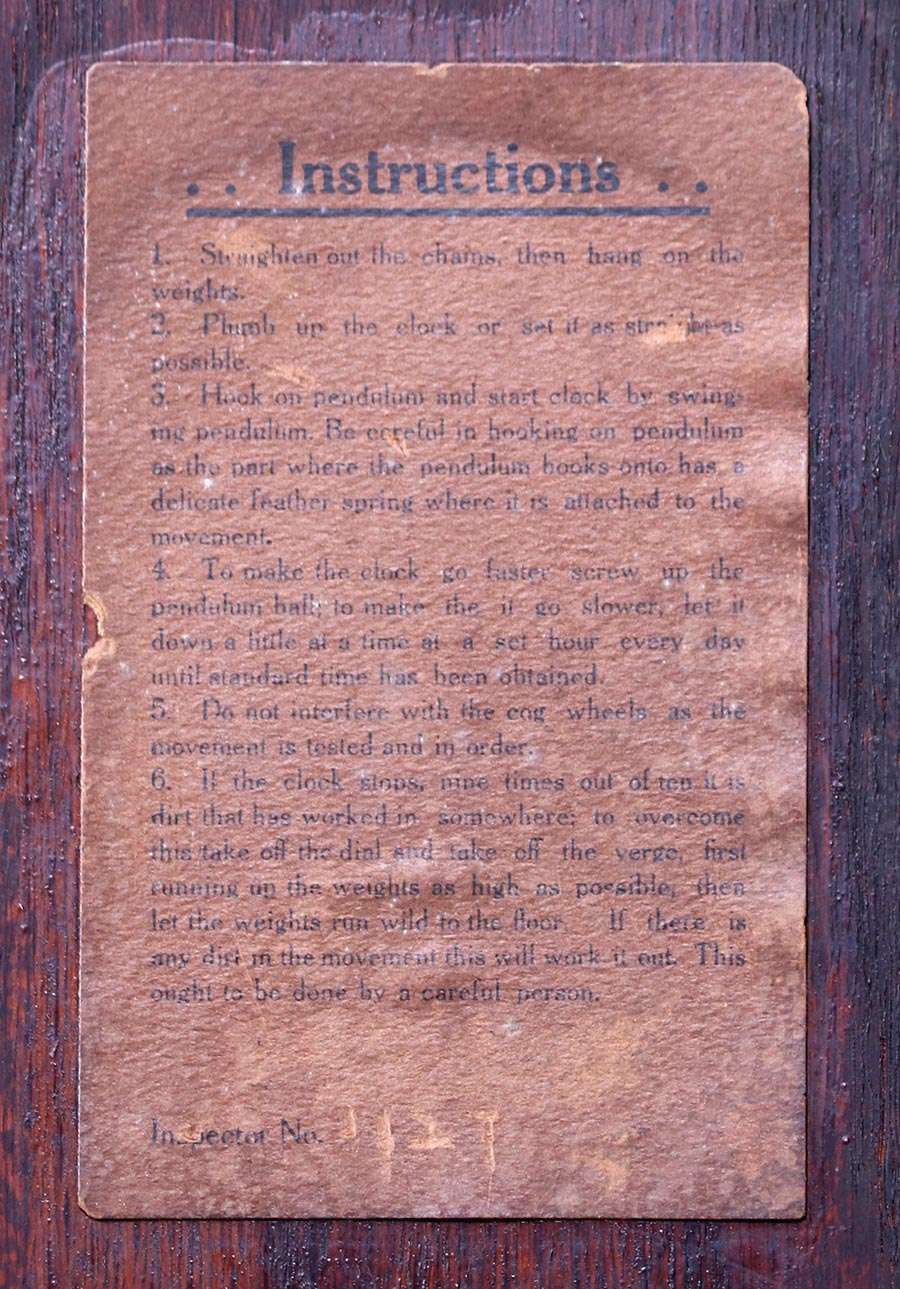 . . Instructions . .
1. Straighten out the chains, then hang on the
weights.
2. Plumb up the clock or set it as straight as
possible.
3. Hook on pendulum and start clock by swing-
ing pendulum. Be careful in hooking on pendulum
as the part where the pendulum hooks onto has a
delicate feather spring where it is attached to the
movement.
4. To make the clock go faster screw up the
pendulum ball; to make the it go slower, let it
down a little at a time at a set hour every day
until standard time has been obtained.
5. Do not interfere with the cog wheels as the
movement is tested and in order.
6. If the clock stops, nine times out of ten it is
dirt that has worked in somewhere; to overcome
this take off the dial and take off the verge, first
running up the weights as high as possible, then
let the weights run wild to the floor. If there is
any dirt in the movement this will work it out. This
ought to be done by a careful person.
Inspector No.